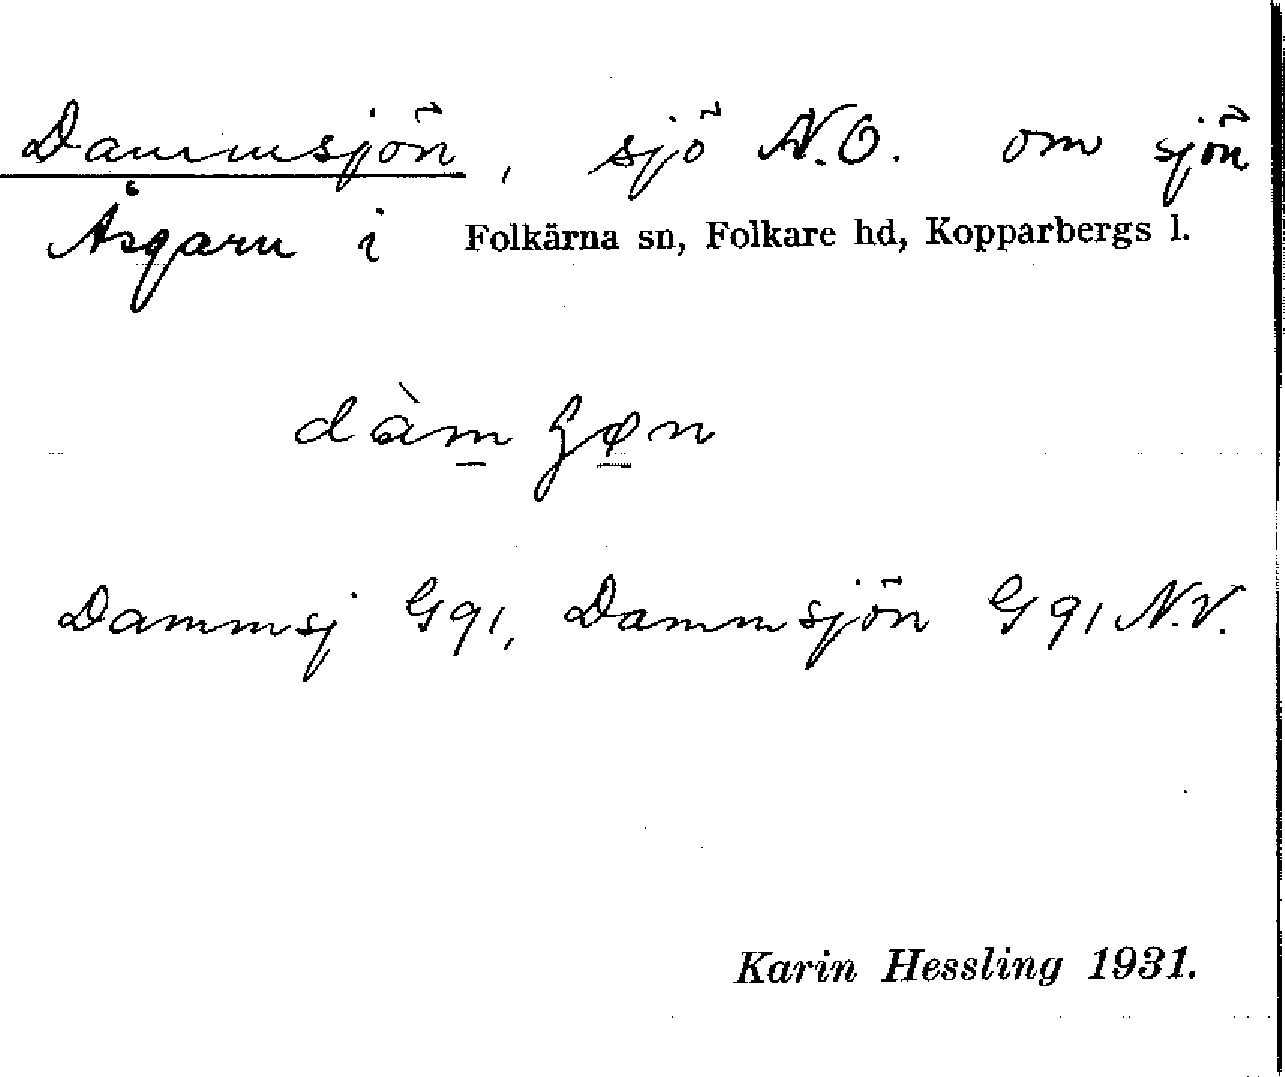 Dammsjön, sjö N.O. om sjön
Åsgarn i Folkärna sn, Folkare hd, Kopparbergs l.
Dammsj G91, Dammsjön G91 N.V.
Karin Hessling 1931.